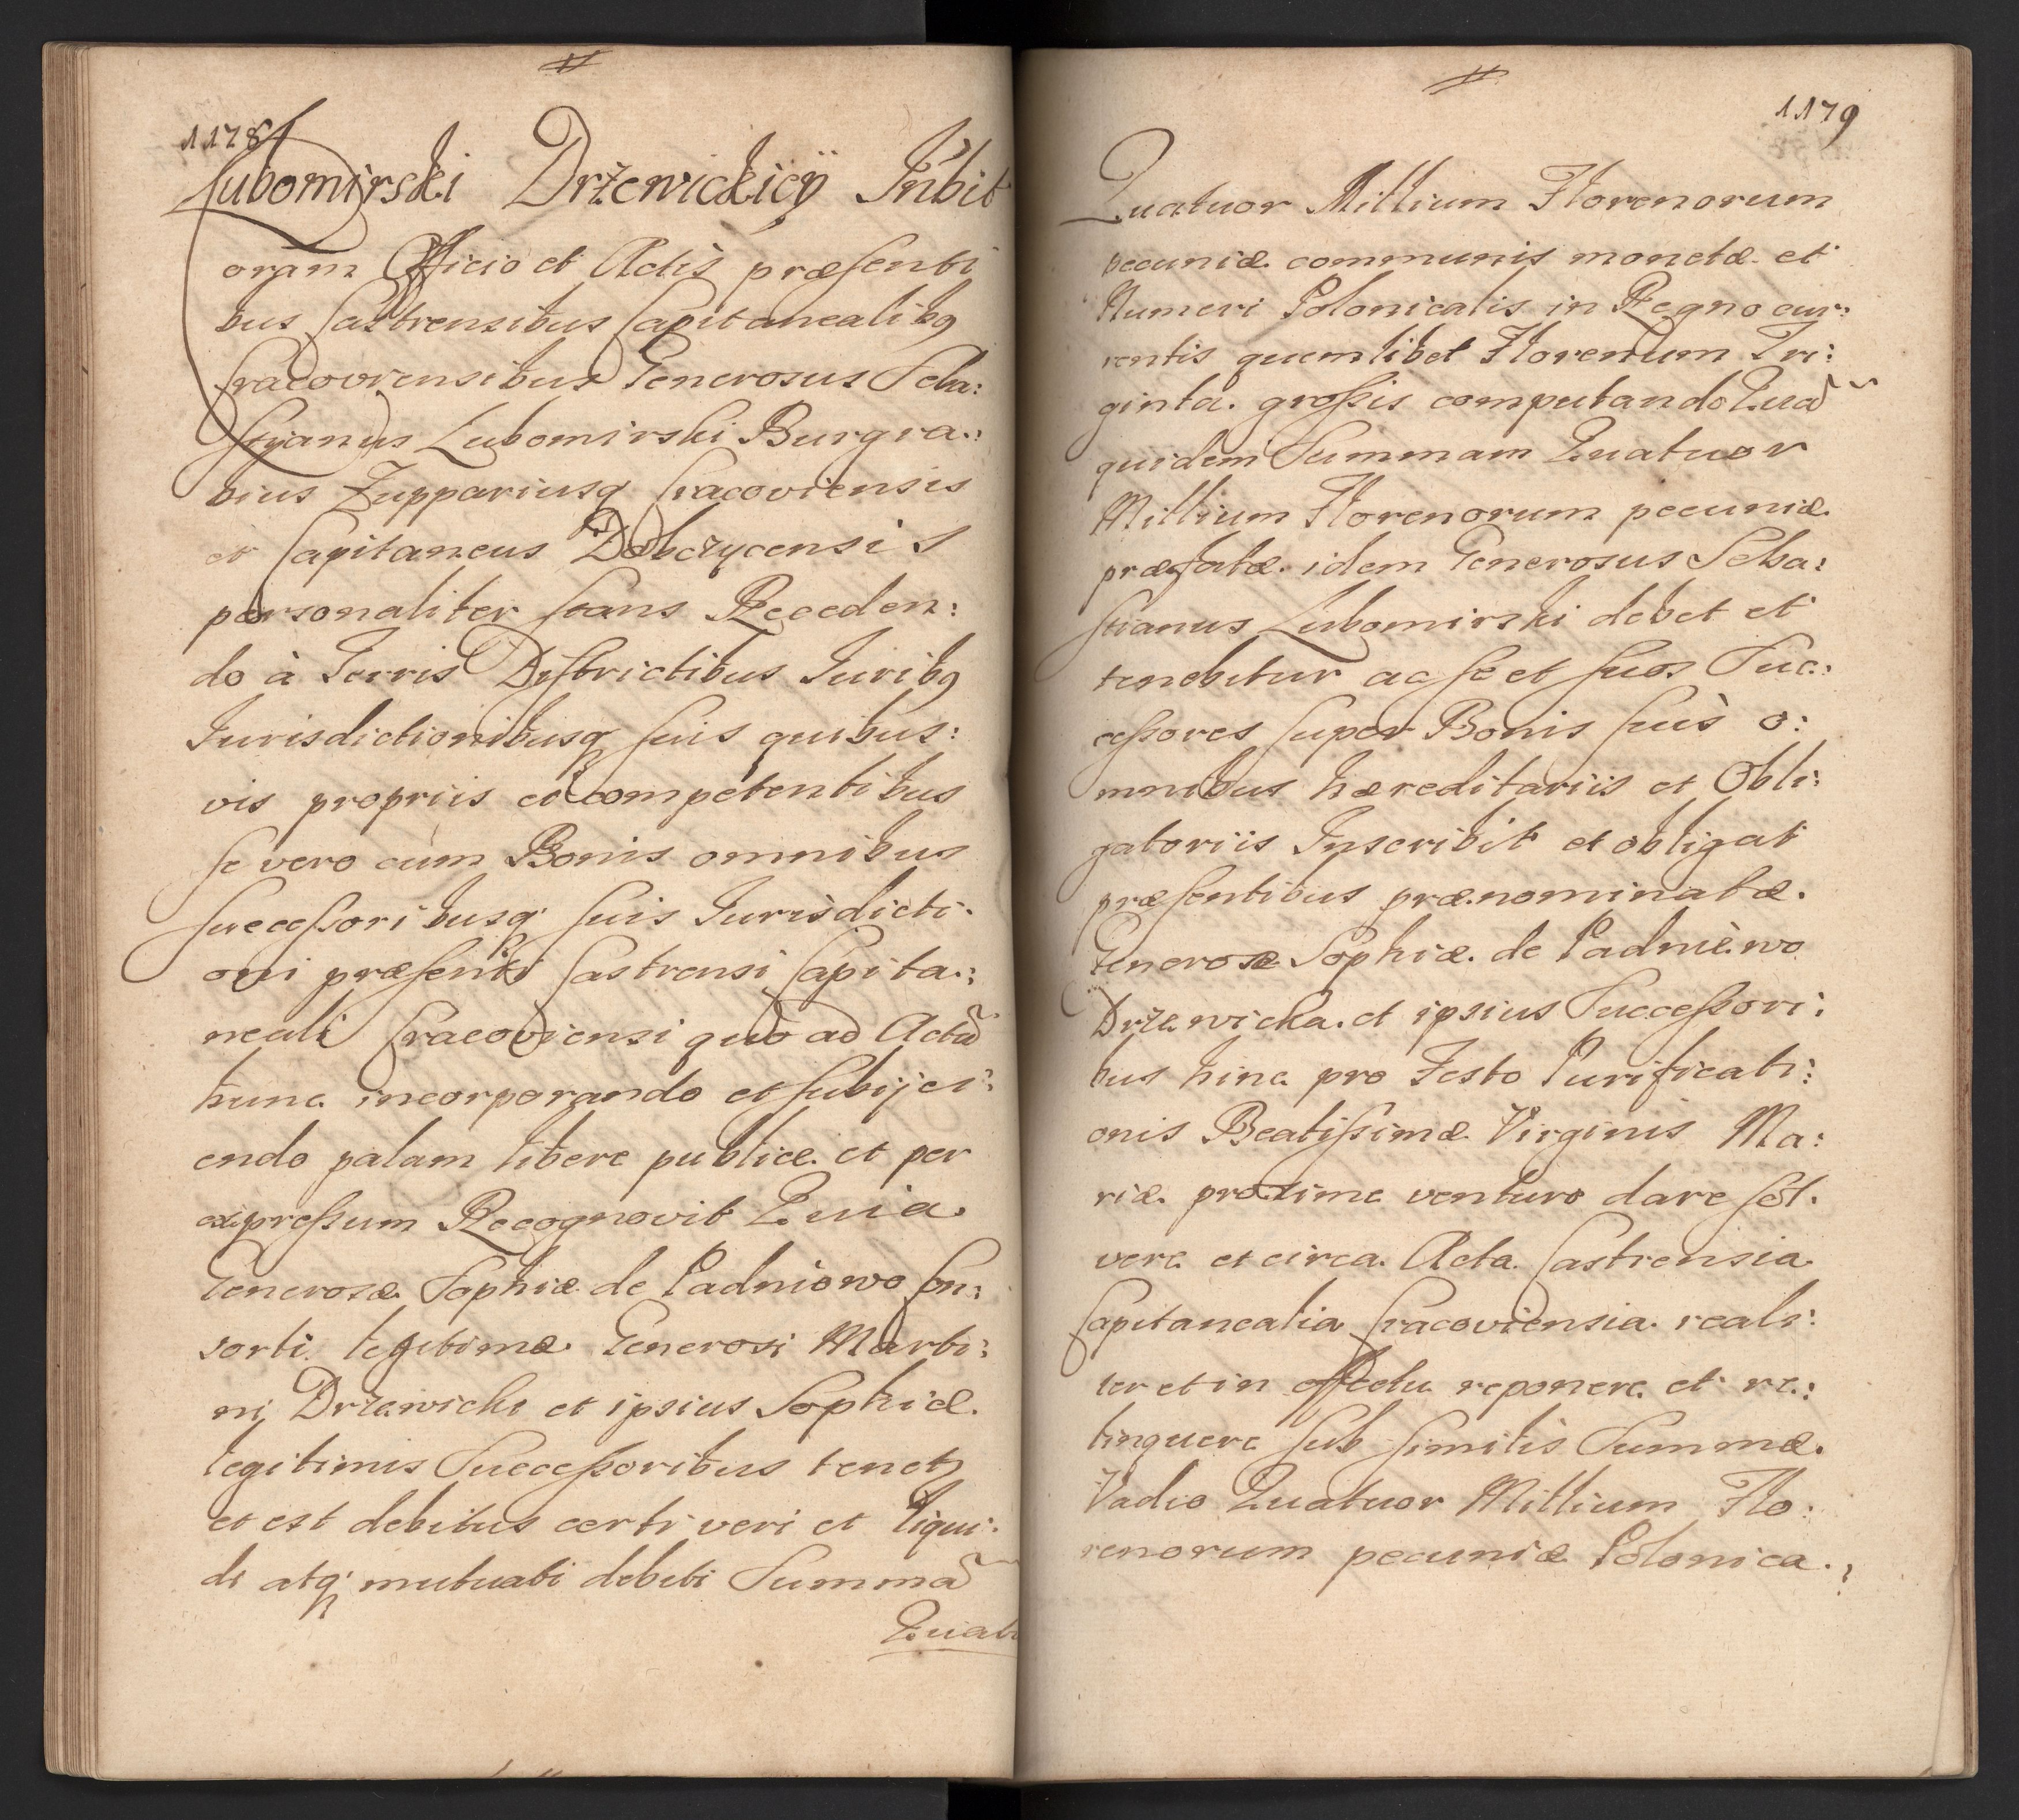 1178
Lubomirski Drzewickiey Inbit
oram Officio et Actis præsenti
bus Castrensibus Capitanealibq
Cracoviensibus Generosus Seba:
styanus Lubomirski Burgra:
bius Zuppariusq Cracoviensis
et Capitaneus Dobczycensis
personaliter stans Receden:
do à Terris Districtibus Iuribq
Iurisdictionibusq suis quibus:
vis propriis et competentibus
se vero cum Bonis omnibus
successoribusq suis Iurisdicti:
oni præsenti Castrensi Capita:
neali Cracoviensi quo ad Actũ
hunc incorporando et subijci:
endo palam libere publice et per
expressum Recognovit Quia
Generosæ Sophiæ de Padniowo Con:
sorti legitimæ Generosi Marti:
nj Drzewicki et ipsius Sophiæ
legitimis Successoribus tenetq
et est debitus certi veri et liqui:
di atq mutuati debiti Summã
Quatu
1179
Quatuor Millium Florenorum
pecuniæ communis monetæ et
Numeri Polonicalis in Regno cur:
rentis quemlibet Florenum Tri:
ginta grossis computando Quã
quidem Summam Quatuor
Millium Florenorum pecuniæ
præfatæ idem Generosus Seba:
stianus Lubomirski debet et
tenebitur ac se et suos Suc:
cessores super Bonis suis o:
mnibus hæreditariis et Obli:
gatoriis Inscribit et obligat
præsentibus prænominatæ
Generosæ Sophiæ de Padniewo
Drzewicka et ipsius Successori:
bus hinc pro Festo Purificati:
onis Beatissimæ Virginis Ma:
riæ proxime venturo dare sol:
vere et circa Acta Castrensia
Capitanealia Cracoviensia reali:
ter et in effectu reponere et re:
linquere sub similis Summæ
Vadio Quatuor Millium Flo:
renorum pecuniæ Polonica: